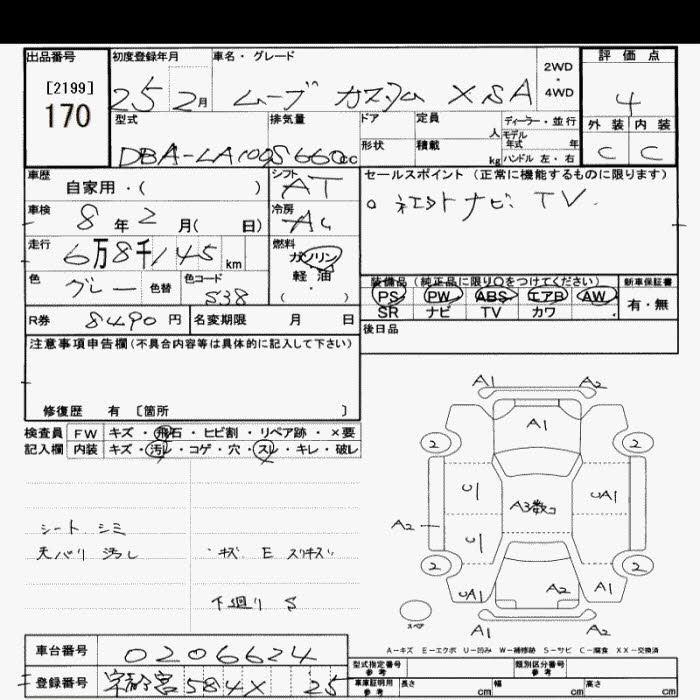 出品番号 初度登録年月 車名・グレード 評価点
[2199] 170
25 2月 ムーブ カスタム X SA 2WD・4WD 4
型式 排気量 ドア 定員 人 ディーラー・並行
モデル年式 年
形状 積載 kg ハンドル 左・右
外装 内装
C C
DBA-LA100S 660cc
車歴 自家用・( ) シフト AT
セールスポイント (正常に機能するものに限ります)
車検 8年2月( 日) 冷房 AC
走行 6万8千145km
燃料 ガソリン 軽油 ( ・ )
色 グレー 色替 色コード S38
装備品 (純正品に限り○をつけてください) 新車保証書
PS PW ABS エアB AW 有・無
SR ナビ TV カワ
R券 8490円 名変期限 月 日 後日品
注意事項申告欄(不具合内容等は具体的に記入して下さい)
修復歴 有 [箇所 ]
検査員 FW キズ・飛石・ヒビ割・リペア跡・×要
記入欄 内装 キズ・汚レ・コゲ・穴・スレ・キレ・破レ
シート シミ
天バリ 汚レ
キズ E スリキズ
下廻り S
A1 A2
A1
2 2
U UA1
A3数コ
A2 U
2 2
UA1 A2 A1
スペア
A1 A2
A-キズ E-エクボ U-凹み W-補修跡 S-サビ C-腐食 XX-交換済
車台番号 0206624
登録番号 宇都宮 584 X 25
型式指定番号 参考 類別区分番号 参考
車庫証明用 参考 長さ cm 幅 cm 高さ cm